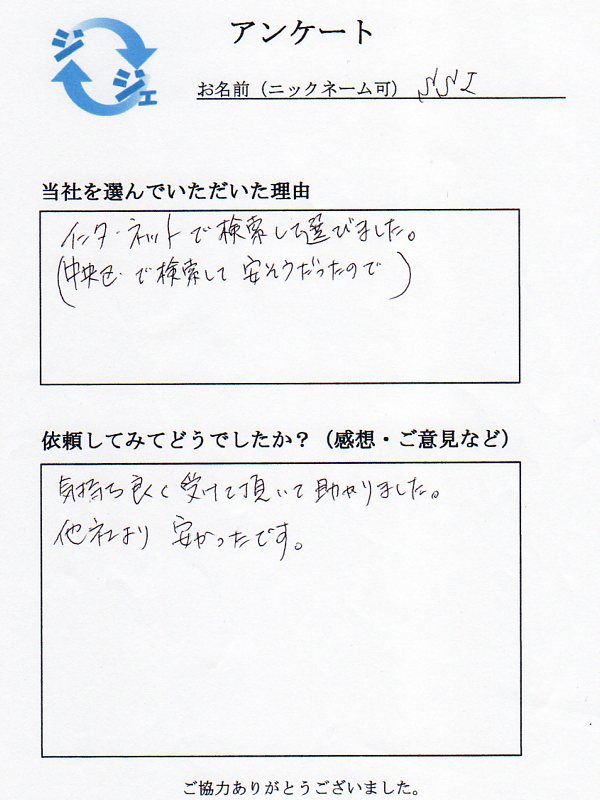 ジジェ
アンケート
お名前（ニックネーム可） SSI
当社を選んでいただいた理由
インターネットで検索して選びました。
(中央区で検索して 安そうだったので)
依頼してみてどうでしたか？（感想・ご意見など）
気持ち良く受けて頂いて助かりました。
他社より 安かったです。
ご協力ありがとうございました。